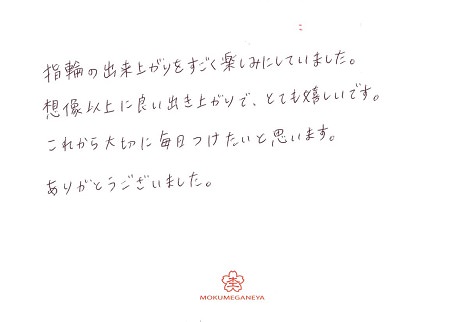 指輪の出来上がりをすごく楽しみにしていました。
想像以上に良い出き上がりで、とても嬉しいです。
これから大切に毎日つけたいと思います。
ありがとうございました。
MOKUMEGANEYA